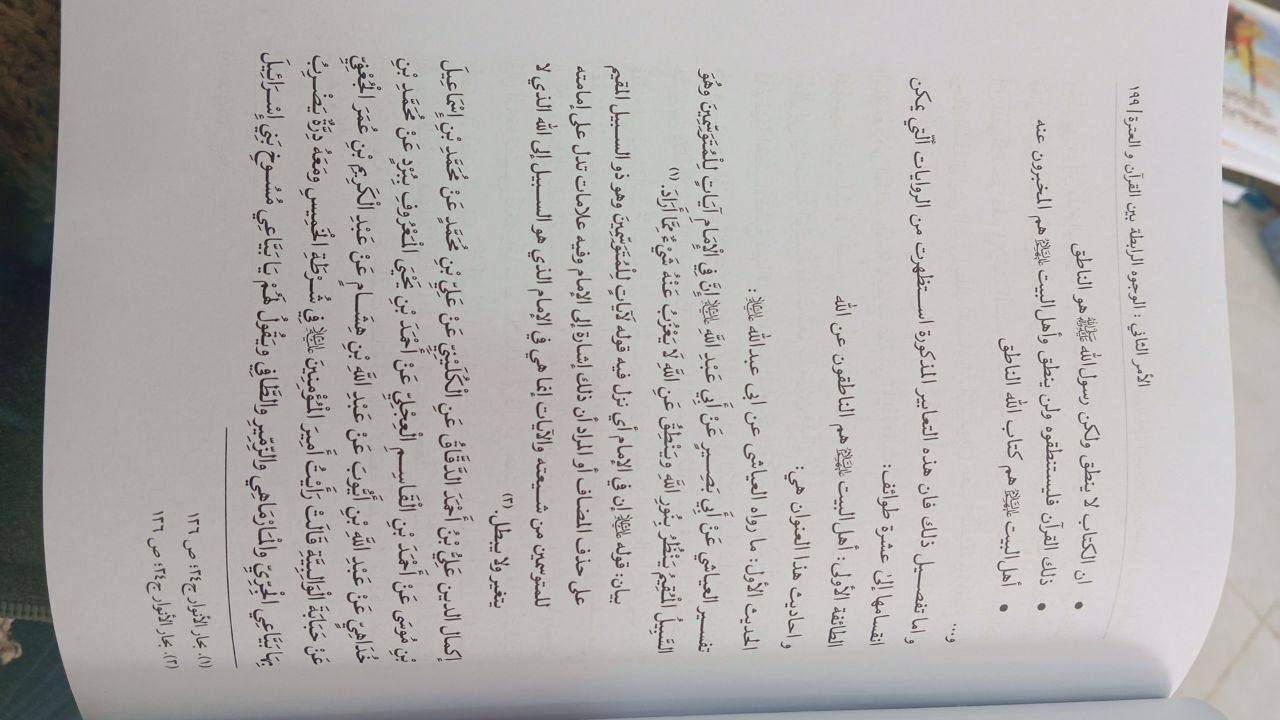 الأمر الثاني : الوجوه الرابطة بين القرآن و العترة / ١٩٩
• ان الكتاب لا ينطق ولكن رسول الله ﷺ هو الناطق
• ذلك القرآن فليستنطقوه ولن ينطق وأهل البيت عليهم السلام هم المخبرون عنه
• أهل البيت عليهم السلام هم كتاب الله الناطق
و...
و اما تفصيل ذلك فان هذه التعابير المذكورة استظهرت من الروايات الّتي يمكن
انقسامها إلىٰ عشرة طوائف:
الطائفة الأولى: أهل البيت عليهم السلام هم الناطقون عن الله
و احاديث هذا العنوان هي:
الحديث الأول: ما رواه العياشي عن ابى عبدالله عليه السلام :
تفسير العياشي عَنْ أَبِي بَصِيرٍ عَنْ أَبِي عَبْدِ اللَّهِ عليه السلام إِنَّ فِي الْإِمَامِ آيَاتٍ لِلْمُتَوَسِّمِينَ وَهُوَ
السَّبِيلُ الْمُقِيمُ يَنْظُرُ بِنُورِ اللَّهِ وَيَنْطِقُ عَنِ اللَّهِ لَا يَعْزُبُ عَنْهُ شَيْءٌ مِمَّا أَرَادَ. (١)
بيان: قوله عليه السلام إن في الإمام أي نزل فيه قوله لآياتٍ لِلْمُتَوَسِّمِينَ وهو ذو السبيل المقيم
على حذف المضاف أو المراد أن ذلك إشارة إلى الإمام وفيه علامات تدل على إمامته
للمتوسمين من شيعته والآيات إنما هي في الإمام الذي هو السبيل إلى الله الذي لا
يتغير ولا يبطل. (٢)
إكمال الدين عَلِيُّ بْنُ أَحْمَدَ الدَّقَّاقُ عَنِ الْكُلَيْنِيِّ عَنْ عَلِيِّ بْنِ مُحَمَّدٍ عَنْ مُحَمَّدِ بْنِ إِسْمَاعِيلَ
بْنِ مُوسَى عَنْ أَحْمَدَ بْنِ الْقَاسِمِ الْعِجْلِيِّ عَنْ أَحْمَدَ بْنِ يَحْيَى الْمَعْرُوفِ بِبُرْدٍ عَنْ مُحَمَّدِ بْنِ
خُدَاهِيٍّ عَنْ عَبْدِ اللَّهِ بْنِ أَيُّوبَ عَنْ عَبْدِ اللَّهِ بْنِ هِشَامٍ عَنْ عَبْدِ الْكَرِيمِ بْنِ عُمَرَ الْجُعْفِيِّ
عَنْ حَبَابَةَ الْوَالِبِيَّةِ قَالَتْ رَأَيْتُ أَمِيرَ الْمُؤْمِنِينَ عليه السلام فِي شُرْطَةِ الْخَمِيسِ وَمَعَهُ دِرَّةٌ يَضْرِبُ
بِهَا بَيَّاعِي الْجِرِّيِّ وَالْمَارْمَاهِي وَالزِّمِّيرِ وَالطَّافِي وَيَقُولُ لَهُمْ يَا بَيَّاعِي مُسُوخِ بَنِي إِسْرَائِيلَ
(١). بحار الأنوار ج٢٤؛ ص ١٢٦
(٢). بحار الأنوار ج٢٤؛ ص ١٢٦